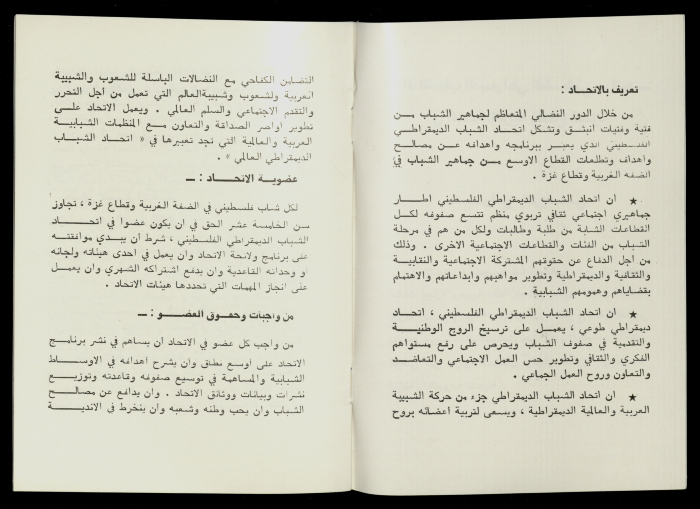 تعريف بالاتحـاد :
من خلال الدور النضالي المتعاظم لجماهير الشباب مـــن
فتية وفتيات انبثـق وتشكل اتحـاد الشباب الديمقراطـي
الفلسطيني الذي يعبـر ببرنامجه واهدافه عــن مصالــح
واهداف وتطلعات القطاع الاوسع مــن جماهير الشباب في
الضفة الغربية وقطاع غزة .
★ ان اتحاد الشباب الديمقراطي الفلسطيني اطــار
جماهيري اجتماعي ثقافي تربوي منظم تتسع صفوفه لكــل
القطاعات الشابة من طلبة وطالبات ولكل من هم في مرحلة
الشباب من الفئات والقطاعات الاجتماعية الاخرى . وذلك
من اجل الدفاع عن حقوقهم المشتركة الاجتماعية والنقابية
والثقافية والديمقراطية وتطوير مواهبهم وابداعاتهم والاهتمام
بقضاياهم وهمومهم الشبابية .
★ ان اتحاد الشباب الديمقراطي الفلسطيني ، اتحــاد
ديمقراطي طوعي ، يعمــل على ترسيخ الروح الوطنيــة
والتقدمية في صفوف الشباب ويحرص على رفع مستواهم
الفكري والثقافي وتطوير حس العمل الاجتماعي والتعاضــد
والتعاون وروح العمل الجماعي .
★ ان اتحاد الشباب الديمقراطي جزء من حركة الشبيبة
العربية والعالمية الديمقراطية ، ويسعى لتربية اعضائه بروح
التضامن الكفاحي مع النضالات الباسلة للشعوب والشبيبة
العربية ولشعوب وشبيبة العالم التي تعمل من اجل التحرر
والتقدم الاجتماعي والسلم العالمي . ويعمل الاتحاد علــى
تطوير اواصر الصداقة والتعاون مــع المنظمات الشبابيــة
العربية والعالمية التي تجد تعبيرها في « اتحــاد الشبــاب
الديمقراطي العالمي » .
عضويـة الاتحــاد : ــ
لكل شـاب فلسطيني في الضفة الغربية وقطاع غزة ، تجاوز
سن الخامسة عشر الحق في ان يكون عضوا في اتحـــاد
الشباب الديمقراطي الفلسطيني ، شرط ان يبــدي موافقتــه
على برنامج ولائحة الاتحاد وان يعمل في احدى هيئاته ولجانه
او وحداته القاعدية وان يدفع اشتراكه الشهري وان يعمــل
على انجاز المهمات التي تحددها هيئات الاتحاد .
من واجبات وحقـوق العضــو : ــ
من واجب كل عضو في الاتحاد ان يساهم في نشر برنامج
الاتحاد على اوسع نطاق وان يشرح اهدافه في الاوســاط
الشبابية والمساهمة في توسيع صفوفه وقاعدته وتوزيــع
نشرات وبيانات ووثائق الاتحاد . وان يدافع عن مصالــح
الشباب وان يحب وطنه وشعبه وان ينخرط في الانديــة